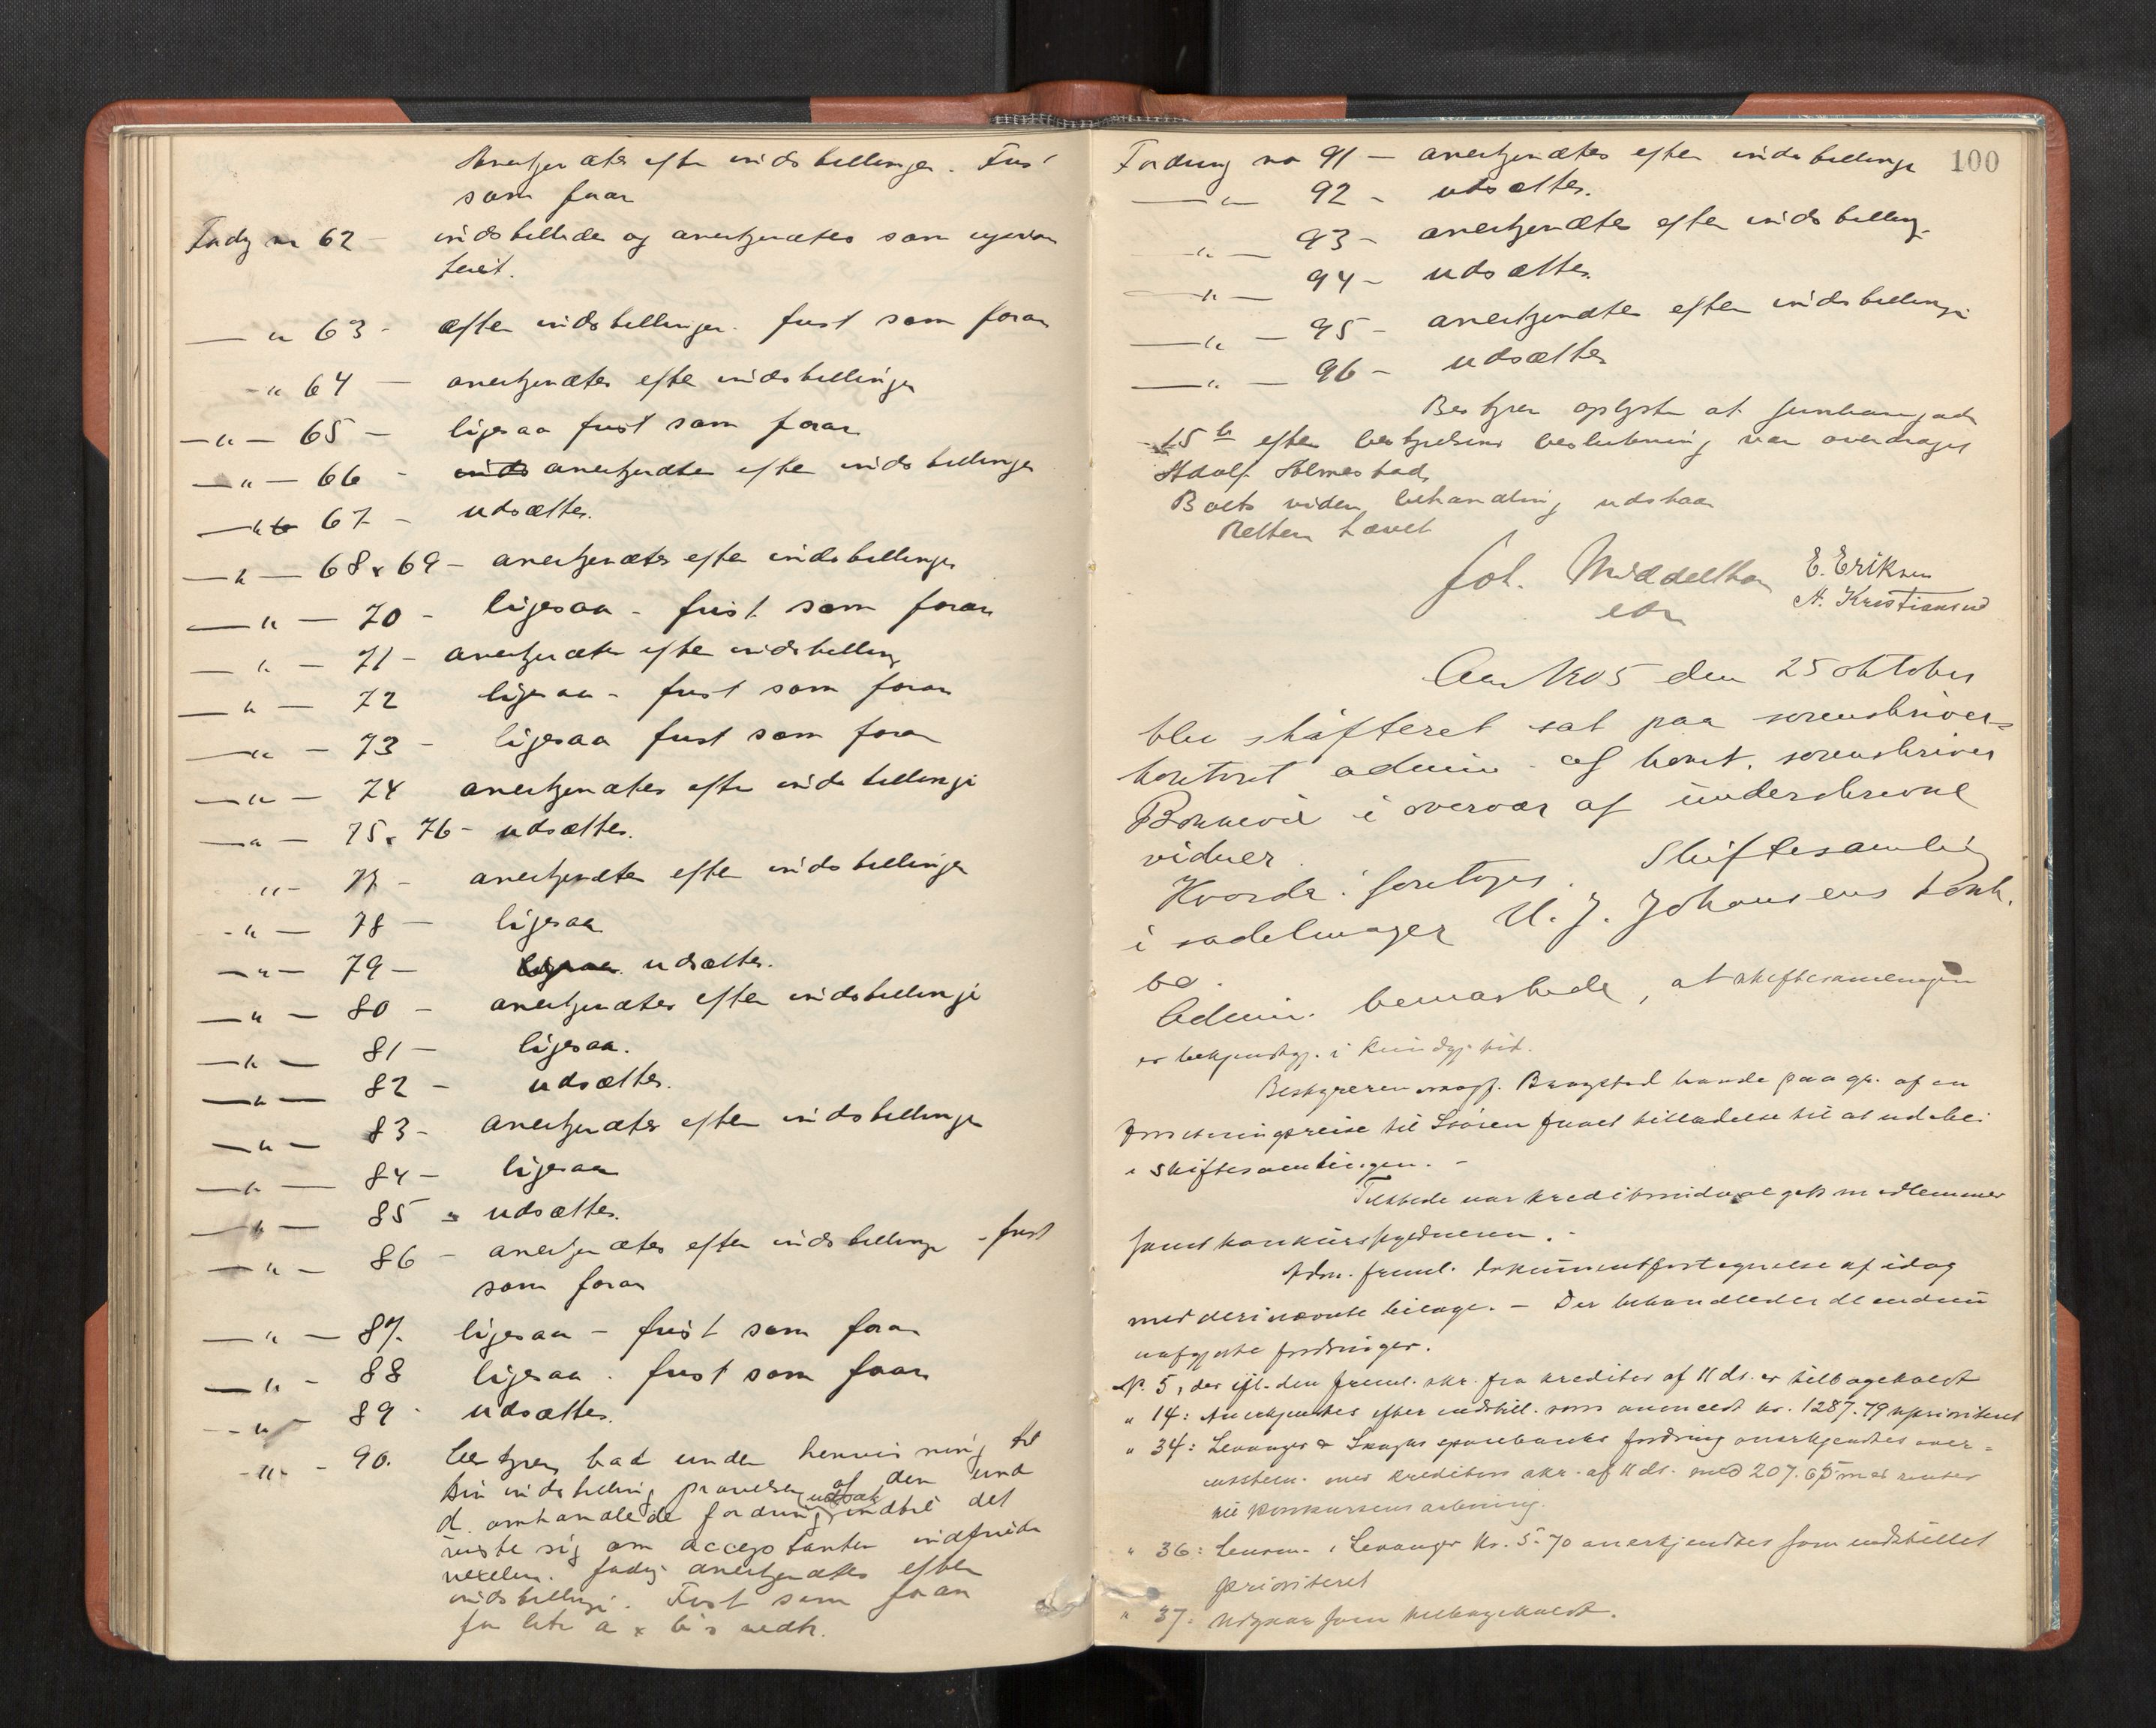 Anerkjendtes efter indstillingen. Frist
som foran
Fordg nr 62 - indstilledes og anerkjendtes som uprior
teret.
— " 63 - efter indstillingen. frist som foran
- " 64 — anerkjendtes efter indstillingen
— " — 65 - ligesaa frist som foran
— " — 66 - anerkjendtes efter indstillingen
— " 67 - udsættes.
— " — 68 & 69 - anerkjendtes efter indstillingen
— " — 70 - ligesaa - frist som foran
— " — 71 - anerkjendtes efter indstilling
— " — 72 ligesaa - frist som foran
— " — 73 - ligesaa frist som foran
— " — 74 anerkjendtes efter indstilling
— " — 75 & 76 - udsættes.
" - 77 - anerkjendtes efter indstillingen
- " — 78 — ligesaa
— " — 79 — udsættes.
— " — 80 - anerkjendtes efter indstilling
— " — 81 — ligesaa.
— " — 82 - udsættes.
— " — 83 - anerkjendtes efter indstillingen
— " — 84 — ligesaa
— " — 85 - udsættes.
— " — 86 - anerkjendtes efter indstilling - frist
som foran
— " — 87. ligesaa - frist som foran
— " - 88 ligesaa . frist som foran
- " - 89 - udsættes.
- " - 90. bestyren bad under henvisning til
sin indstilling prøvelsen af den und
d. omhandlede fordring udsat indtil det
viste sig om acceptanten indfriede
vexelen. fordg anerkjendtes efter
indstilling. Frist som foran
for litr a & b's vedk.
100
Fordring no 91 — anerkjendtes efter indstilling
— " — 92 - udsættes.
" — 93 - anerkjendtes efter indstilling.
— " — 94 - udsættes.
— " — 95 - anerkjendtes efter indstilling
— " — 96 - udsættes
Bestyren oplyste at
15 efter bestyrelsens beslutning var overdraget
Adolf Holmestad.
Boets videre behandling udstaar
Retten hævet
Joh. Middelthon E. Eriksen
ctr A. Kristiansen
Aar 1905 den 25 oktober
blev skifteret sat paa sorenskriver=
kontoret admin. af konst. sorenskriver
Bonnevie i overvær af underskrevne
vidner.
Hvorda: foretoges Skiftesamling
i sadelmager U. J. Johansens konk.
bo.
Admin. bemærkede, at skiftesamlingen
er bekjendtgj. i Kundgj. tid.
Bestyreren sagf. Brugstad havde paa gr. af en
forretningsreise til Snåsen faaet tilladelse til at udebli
i skiftesamlingen. -
Tilstede var kreditorudvalgets medlemmer
samt konkursskyldneren. -
Adm. freml. dokumentfortegnelse af idag
med deri nævnte bilage. — Der behandledes de endnu
uafgjorte fordringer.
N. 5, der ifl. den freml. skr. fra kreditor af 11 ds. er tilbagekaldt
" 14: Anerkjendtes efter indstill. som avanceret kr. 1287.79 uprioriteret
" 34: Levanger & Skogns sparebanks fordring anerkjendtes over-
ensstem. med kreditors skr. af 11 ds. med 207.65 med renter
til konkursens aabning.
" 36: Lensm. i Levanger kr. 5.70 anerkjendtes som indstillet
prioriteret
" 37: Udgaar som tilbagekaldt.